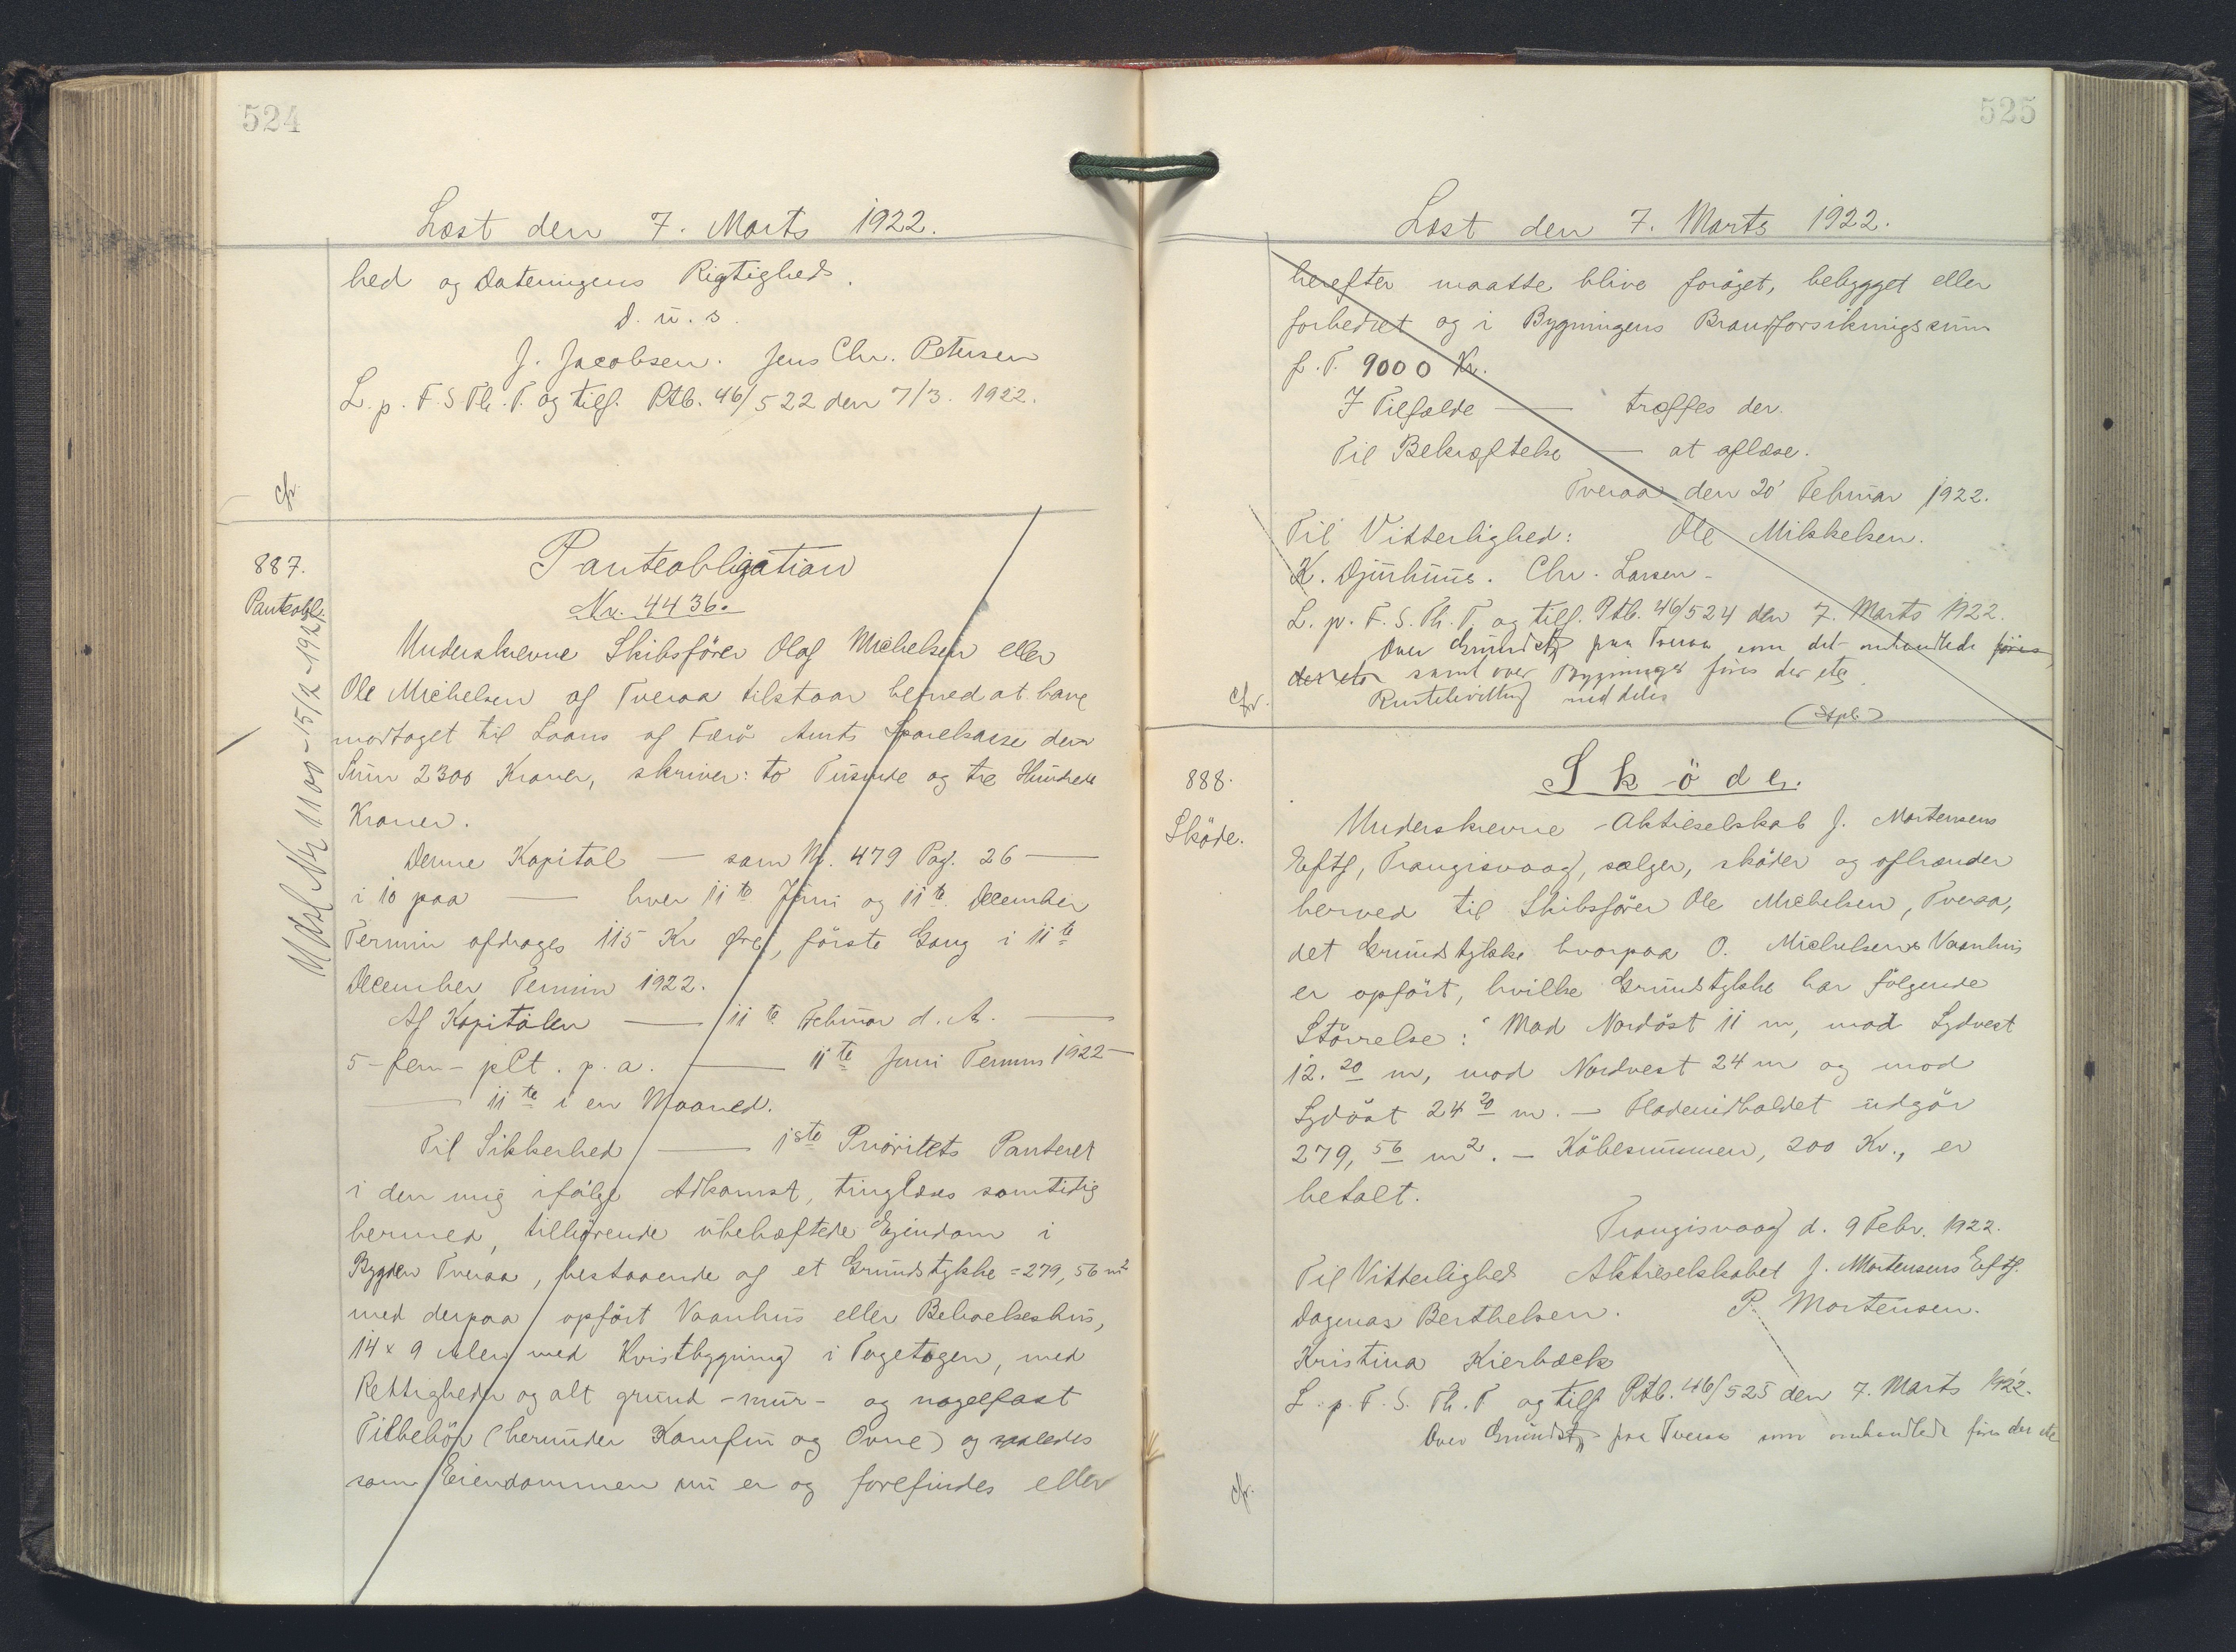 524
Læst den 7. Marts 1922.
hed og Dateringens Rigtighed.
D. u. s.
J. Jacobsen. Jens Chr. Petersen
L. p. F. S. Th. T. og tilf. Ptb. 46/522 den 7/3. 1922.
cfr.
887.
Panteobl.
Udsl. Nr 1100 - 15/12 - 1921
Panteobligation
Nr. 4436.
Underskrevne Skibsförer Olaf Michelsen eller
Ole Michelsen af Tveraa tilstaar herved at have
modtaget til Laans af Færö Amts Sparekasse den
Sum 2300 Kroner, skriver: to Tusinde og tre Hundrede
Kroner.
Denne Kapital — som Nr. 479 Pag. 26 —
i 10 paa — hver 11te Juni og 11te December
Termin afdrages 115 Kr Øre, förste Gang i 11te
December Termin 1922.
Af Kapitalen — 11te Februar d. A. —
5 - fem - pCt. p. a. — 11te Juni Termin 1922 —
— 11te i en Maaned.
Til Sikkerhed — 1ste Prioritets Panteret
i den mig ifölge Adkomst, tinglæses samtidig
hermed, tilhörende ubehæftede Ejendom i
Bygden Tveraa, bestaaende af et Grundstykke = 279,56 m2
med derpaa opfört Vaanhus eller Beboelseshus,
14 x 9 Alen med Kvistbygning i Tagetagen, med
Rettigheder og alt grund - mur - og nagelfast
Tilbehör (herunder Komfur og Ovne) og saaledes
som Eiendommen nu er og forefindes eller
525
Læst den 7. Marts 1922.
herefter maatte blive foröget, bebygget eller
forbedret og i Bygningens Brandforsikringssum
p. T. 9000 Kr.
I Tilfælde — træffes der.
Til Bekræftelse — at aflæse.
Tveraa den 20' Februar 1922.
Til Vitterlighed: Ole Mikkelsen.
K. Djurhuus. Chr. Larsen -
L. p. F. S. Th. T. og tilf. Ptb. 46/524 den 7. Marts 1922.
Over Grundst. paa Tveraa som det omhandlede föres
der etc samt over Bygninger föres der etc
meddeles
(Stpl.)
cfr.
888.
Sköde.
Sköde.
Underskrevne Aktieselskab J. Mortensens
Eftf, Trangisvaag, sælger, sköder og afhænder
herved til Skibsförer Ole Michelsen, Tveraa,
det Grundstykke hvorpaa O. Michelsens Vaanhus
er opfört, hvilke Grundstykke har fölgende
Störrelse: Mod Nordöst 11 m, mod Sydvest
12.20 m, mod Nordvest 24 m og mod
Sydöst 24 20 m. — Fladeindholdet udgör
279,56 m2. — Köbesummen, 200 Kr., er
betalt.
Trangisvaag d. 9 Febr. 1922.
Til Vitterlighed Aktieselskabet J. Mortensens Eftf.
Dagmar Berthelsen. P. Mortensen.
Kristina Kierbæck
L. p. F. S. Th. T og tilf Ptb. 46/525 den 7. Marts 1922.
Over Grundst. paa Tveraa som omhandlede föres der etc
cfr.